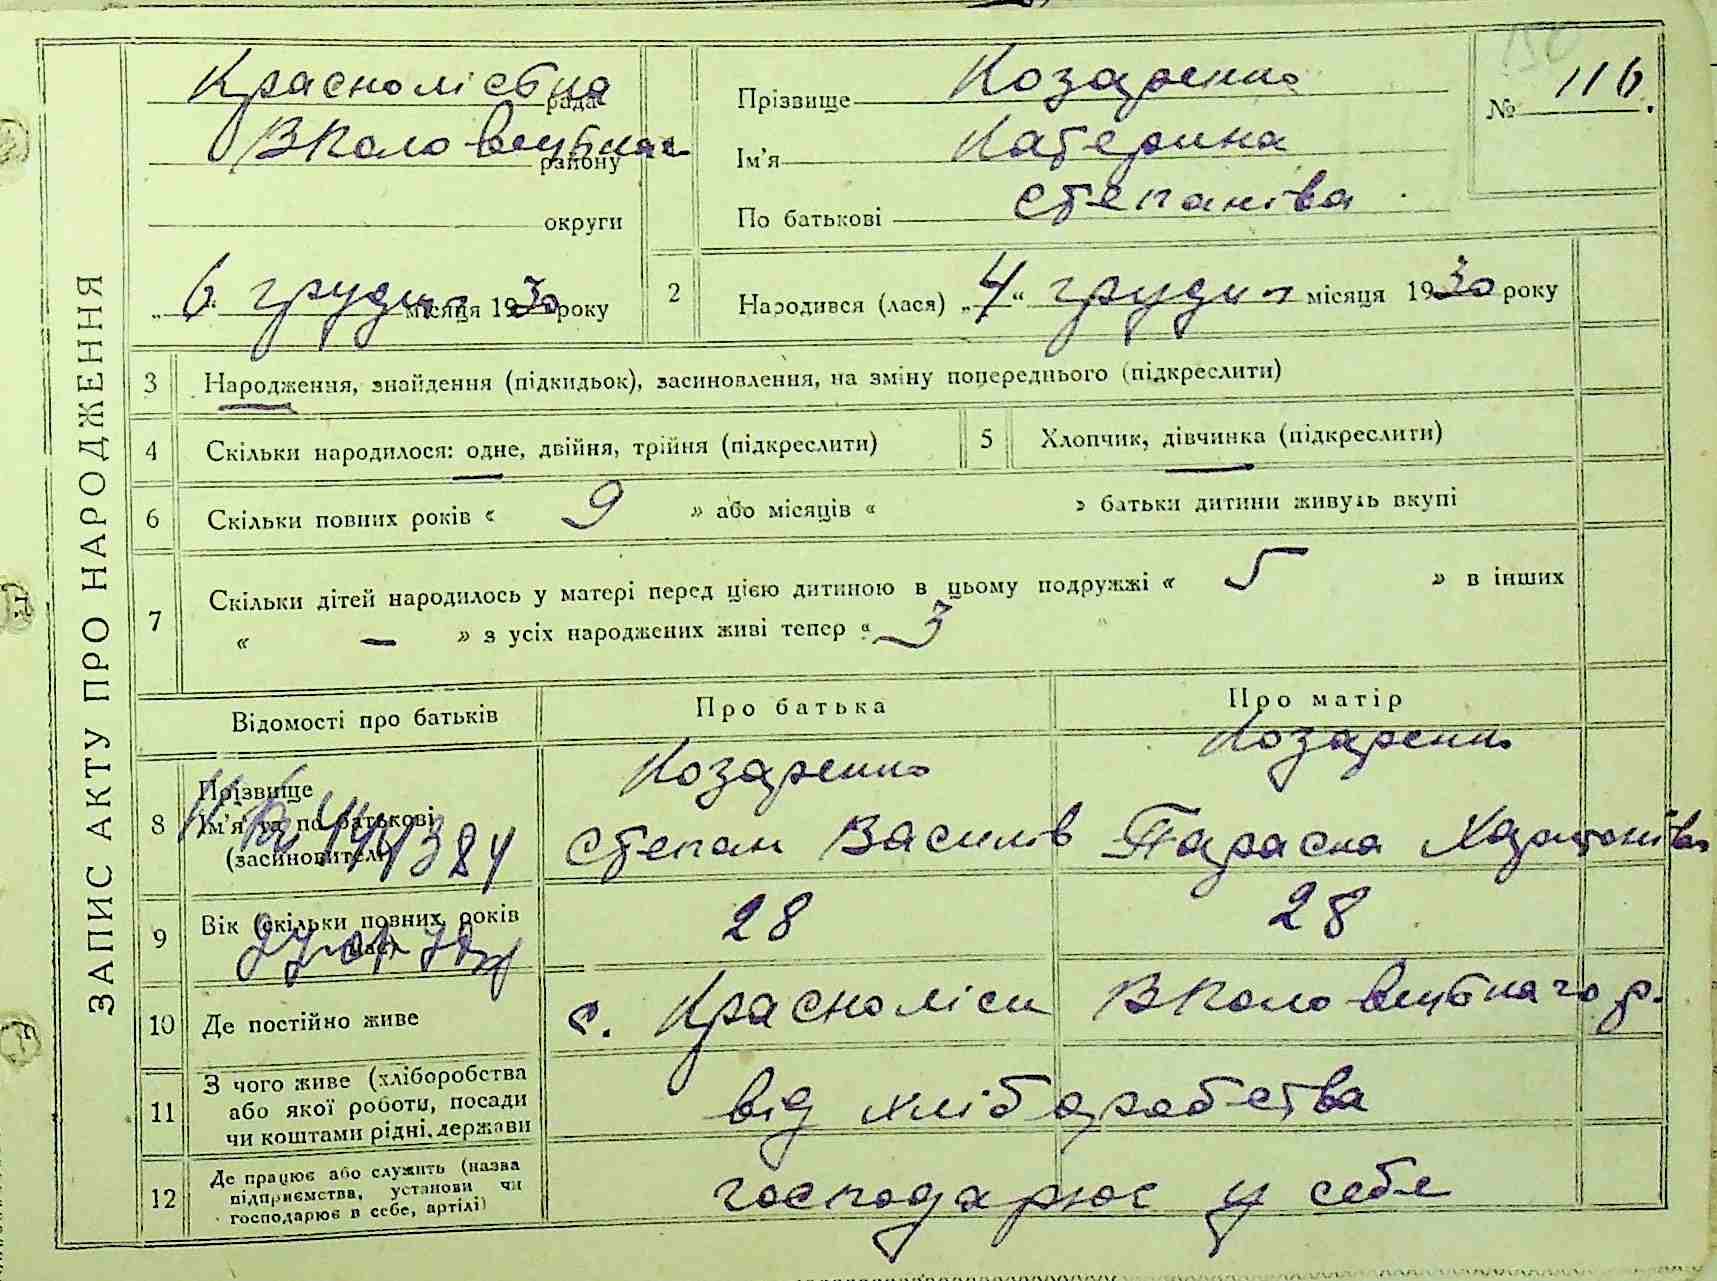 ЗАПИС АКТУ ПРО НАРОДЖЕННЯ
Краснолісна рада
району
округи
„ 6 " грудня місяця 1930 року
Прізвище Козаренко
Ім'я Катерина
По батькові Степанівна
№ 116.
2 Народився (лася) „ 4 " грудня місяця 1930 року
3 Народження, знайдення (підкидьок), засиновлення, на зміну попереднього (підкреслити)
4 Скільки народилося: одне, двійня, трійня (підкреслити)
5 Хлопчик, дівчинка (підкреслити)
6 Скільки повних років « 9 » або місяців « » батьки дитини живуть вкупі
7 Скільки дітей народилось у матері перед цією дитиною в цьому подружжі « 5 » в інших
« — » з усіх народжених живі тепер « 3 "
Відомості про батьків
Про батька
Про матір
8 Прізвище
Ім'я та по батькові
(засиновителі)
Козаренко
Степан Василів
Козаренко
Параска Харитонівна
9 Вік (скільки повних років
має)
28
28
10 Де постійно живе
с. Краснолісн
11 З чого живе (хліборобства
або якої роботи, посади
чи коштами рідні, держави
від хліборобства
12 Де працює або служить (назва
підприємства, установи чи
господарює в себе, артілі)
господарює у себе